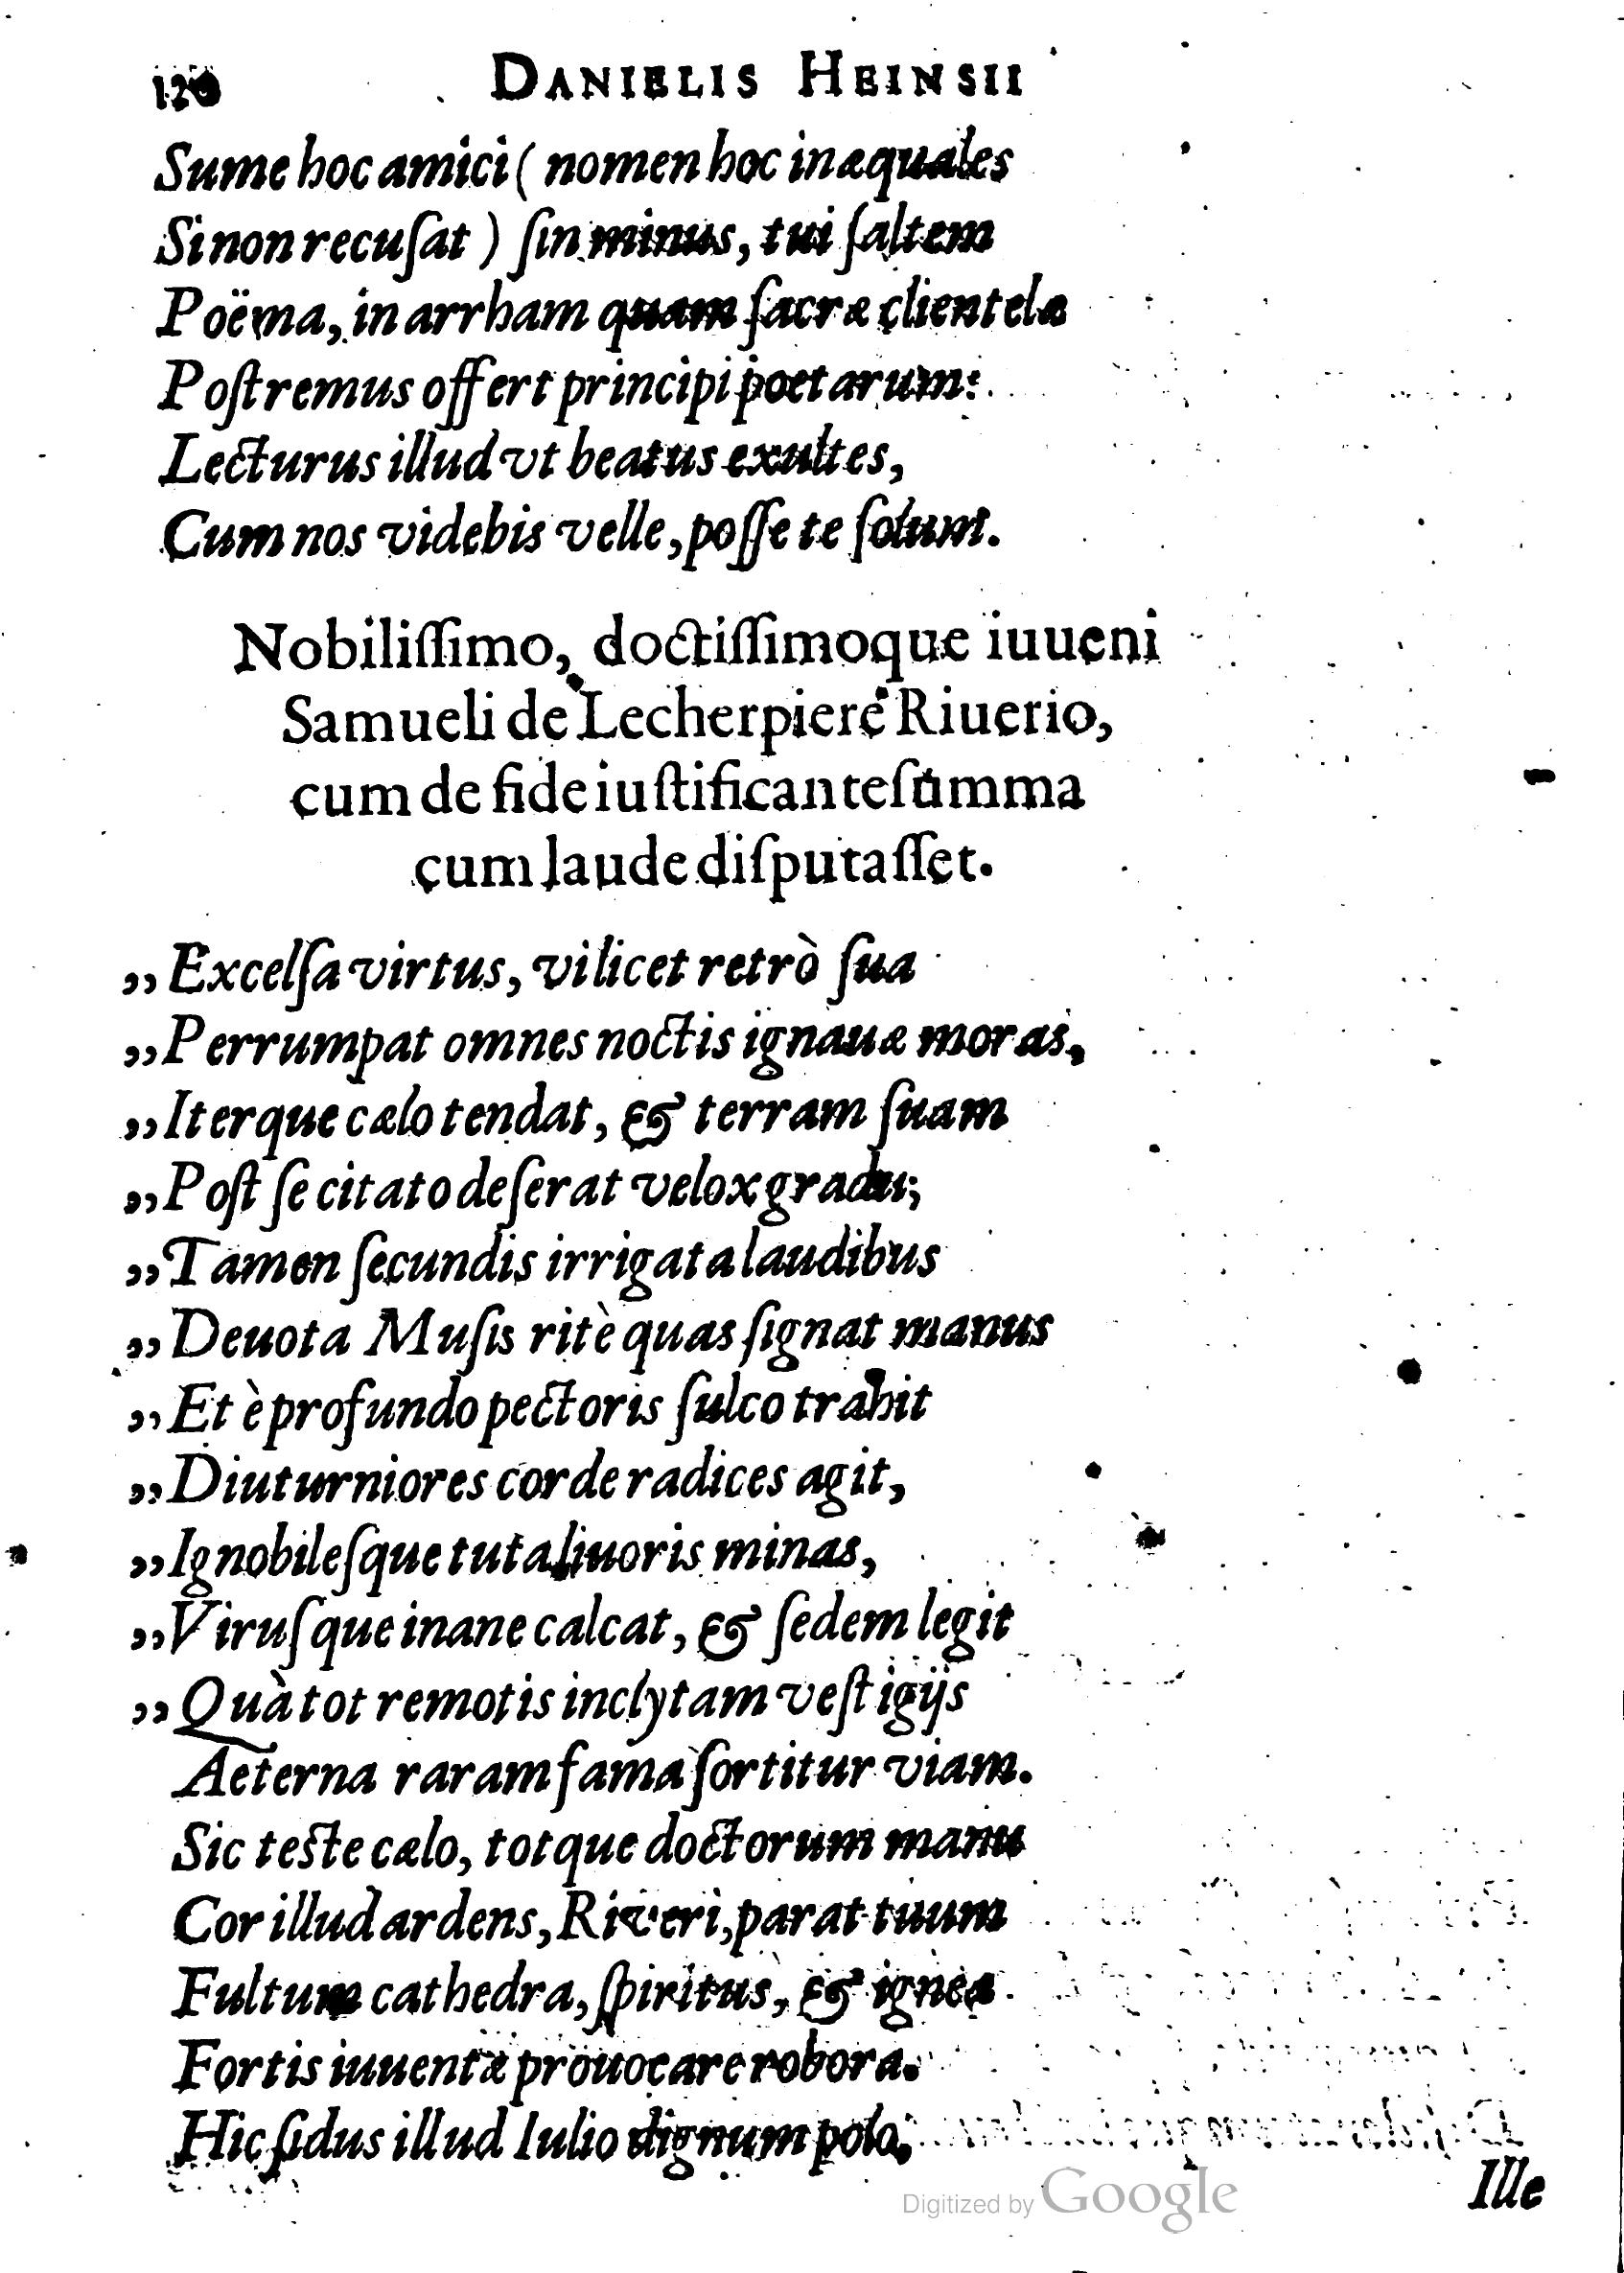 120 DANIELIS HEINSII
Sume hoc amici ( nomen hoc inæquales
Si non recuſat ) ſin minus, tui ſaltem
Poëma, in arrham quam ſacræ clientelæ
Poſtremus offert principi poetarum:
Lecturus illud vt beatus exultes,
Cum nos videbis velle, poſſe te ſolum.
Nobiliſſimo, doctiſſimoque iuueni
Samueli de Lecherpiere Riuerio,
cum de fide iuſtificante ſumma
cum laude diſputaſſet.
„ Excelſa virtus, vi licet retrò ſua
„ Perrumpat omnes noctis ignauæ moras,
„ Iterque cælo tendat, & terram ſuam
„ Poſt ſe citato deſerat velox gradu;
„ Tamen ſecundis irrigata laudibus
„ Deuota Muſis ritè quas ſignat manus
„ Et è profundo pectoris ſulco trahit
„ Diuturniores corde radices agit,
„ Ignobileſque tuta liuoris minas,
„ Viruſque inane calcat, & ſedem legit
„ Quà tot remotis inclytam veſtigijs
Aeterna raram fama ſortitur viam.
Sic teſte cælo, totque doctorum manu
Cor illud ardens, Riveri, parat tuum
Fultum cathedra, ſpiritus, & igneæ
Fortis iuuentæ prouocare robora.
Hic ſidus illud Iulio dignum polo,
Ille
Digitized by Google